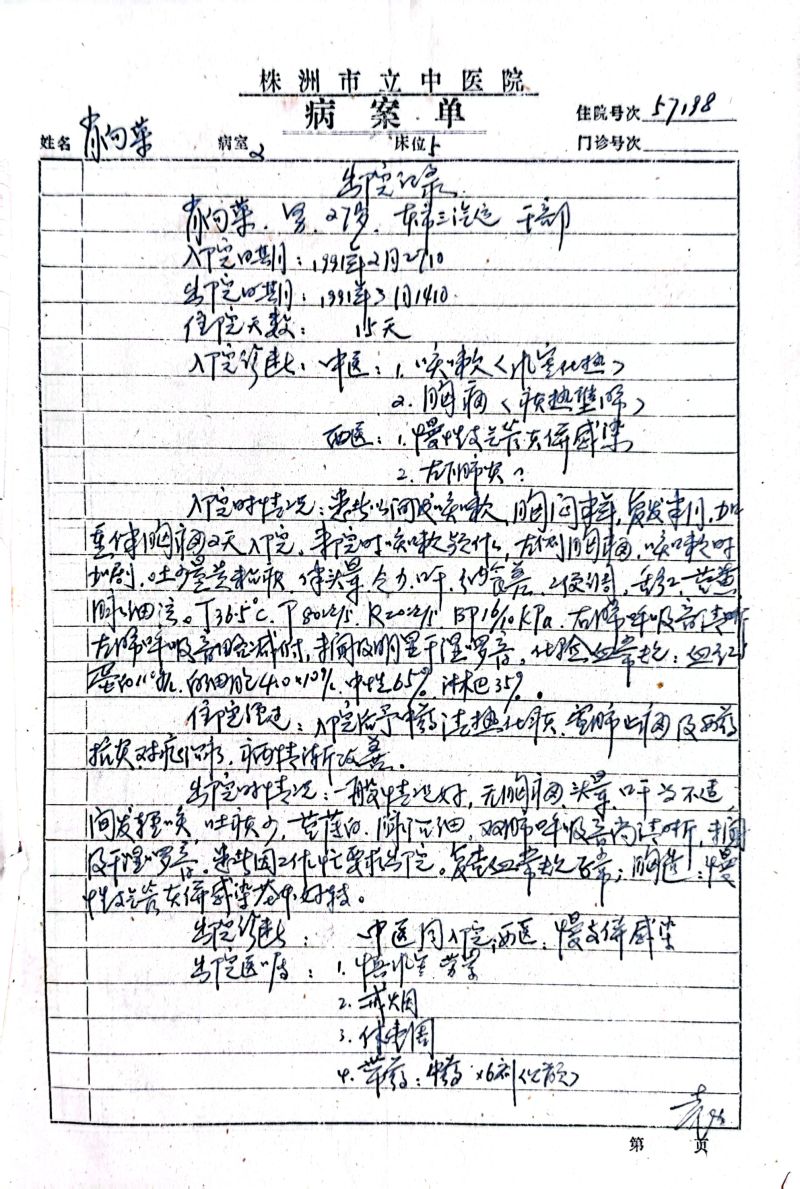 株洲市立中医院
病案单
住院号次 57198
姓名 肖向荣 病室 2 床位 5 门诊号次
出院记录
肖向荣、男、27岁、东市三汽运 干部
入院日期：1991年2月27日
出院日期：1991年3月14日
住院天数： 15天
入院诊断：中医：1. 咳嗽〈风寒化热〉
2. 胸痛〈痰热壅肺〉
西医：1. 慢性支气管炎併感染
2. 左下肺炎？
入院时情况：患者以间发咳嗽、胸闷半年，复发半月，加
重伴胸痛2天入院，来院时咳嗽，左侧胸痛，咳嗽时
加剧，吐少量黄粘痰，伴头晕，乏力，口干，纳食差，二便调，舌红，苔黄
脉细滑。T 36.5℃ P 80次/分 R 20次/分 BP 16/10 KPa 右肺呼吸音清晰
左肺呼吸音略减低，未闻及明显干湿啰音，化验血常规：
白细胞4.0×10⁹/L 中性65% 淋巴35%。
住院经过：入院后予中药清热化痰，宣肺止痛及西药
抗炎对症治疗，病情渐改善。
出院时情况：一般情况好，无胸痛、头晕、口干等不适，
间发轻咳，吐痰少，苔薄白，脉沉细，双肺呼吸音尚清晰，未闻
及干湿啰音，患者因工作忙要求出院。复查血常规正常；胸透：慢
性支气管炎併感染 好转。
出院诊断： 中医同入院，西医：慢支併感染
出院医嘱： 1. 慎风寒 劳累
2. 戒烟
3. 休壹周
4. 带药：中药 ×6剂
第 页